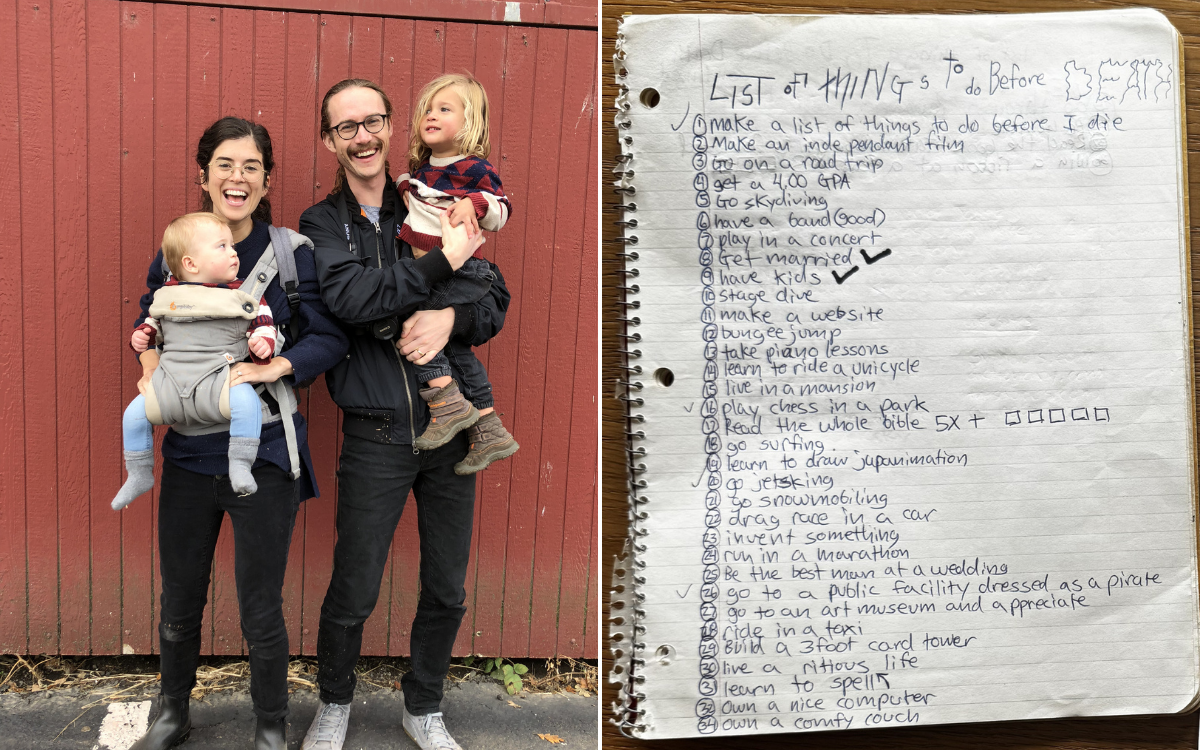 LIST of THINGS to do Before DEATH
① make a list of things to do before I die
② Make an independant film
③ Go on a road trip
④ get a 4.00 GPA
⑤ Go skydiving
⑥ have a band (good)
⑦ play in a concert
⑧ Get married ✓
⑨ have kids ✓
⑩ stage dive
⑪ make a website
⑫ bungee jump
⑬ take piano lessons
⑭ learn to ride a unicycle
⑮ live in a mansion
⑯ play chess in a park
⑰ Read the whole bible 5X + □□□□□
⑱ go surfing
⑲ learn to draw japanimation
⑳ go jetskiing
㉑ go snowmobiling
㉒ drag race in a car
㉓ invent something
㉔ run in a marathon
㉕ Be the best man at a wedding
㉖ go to a public facility dressed as a pirate
㉗ go to an art museum and appreciate
㉘ ride in a taxi
㉙ Build a 3foot card tower
㉚ live a rittous life
㉛ learn to spell
㉜ Own a nice computer
own a comfy couch